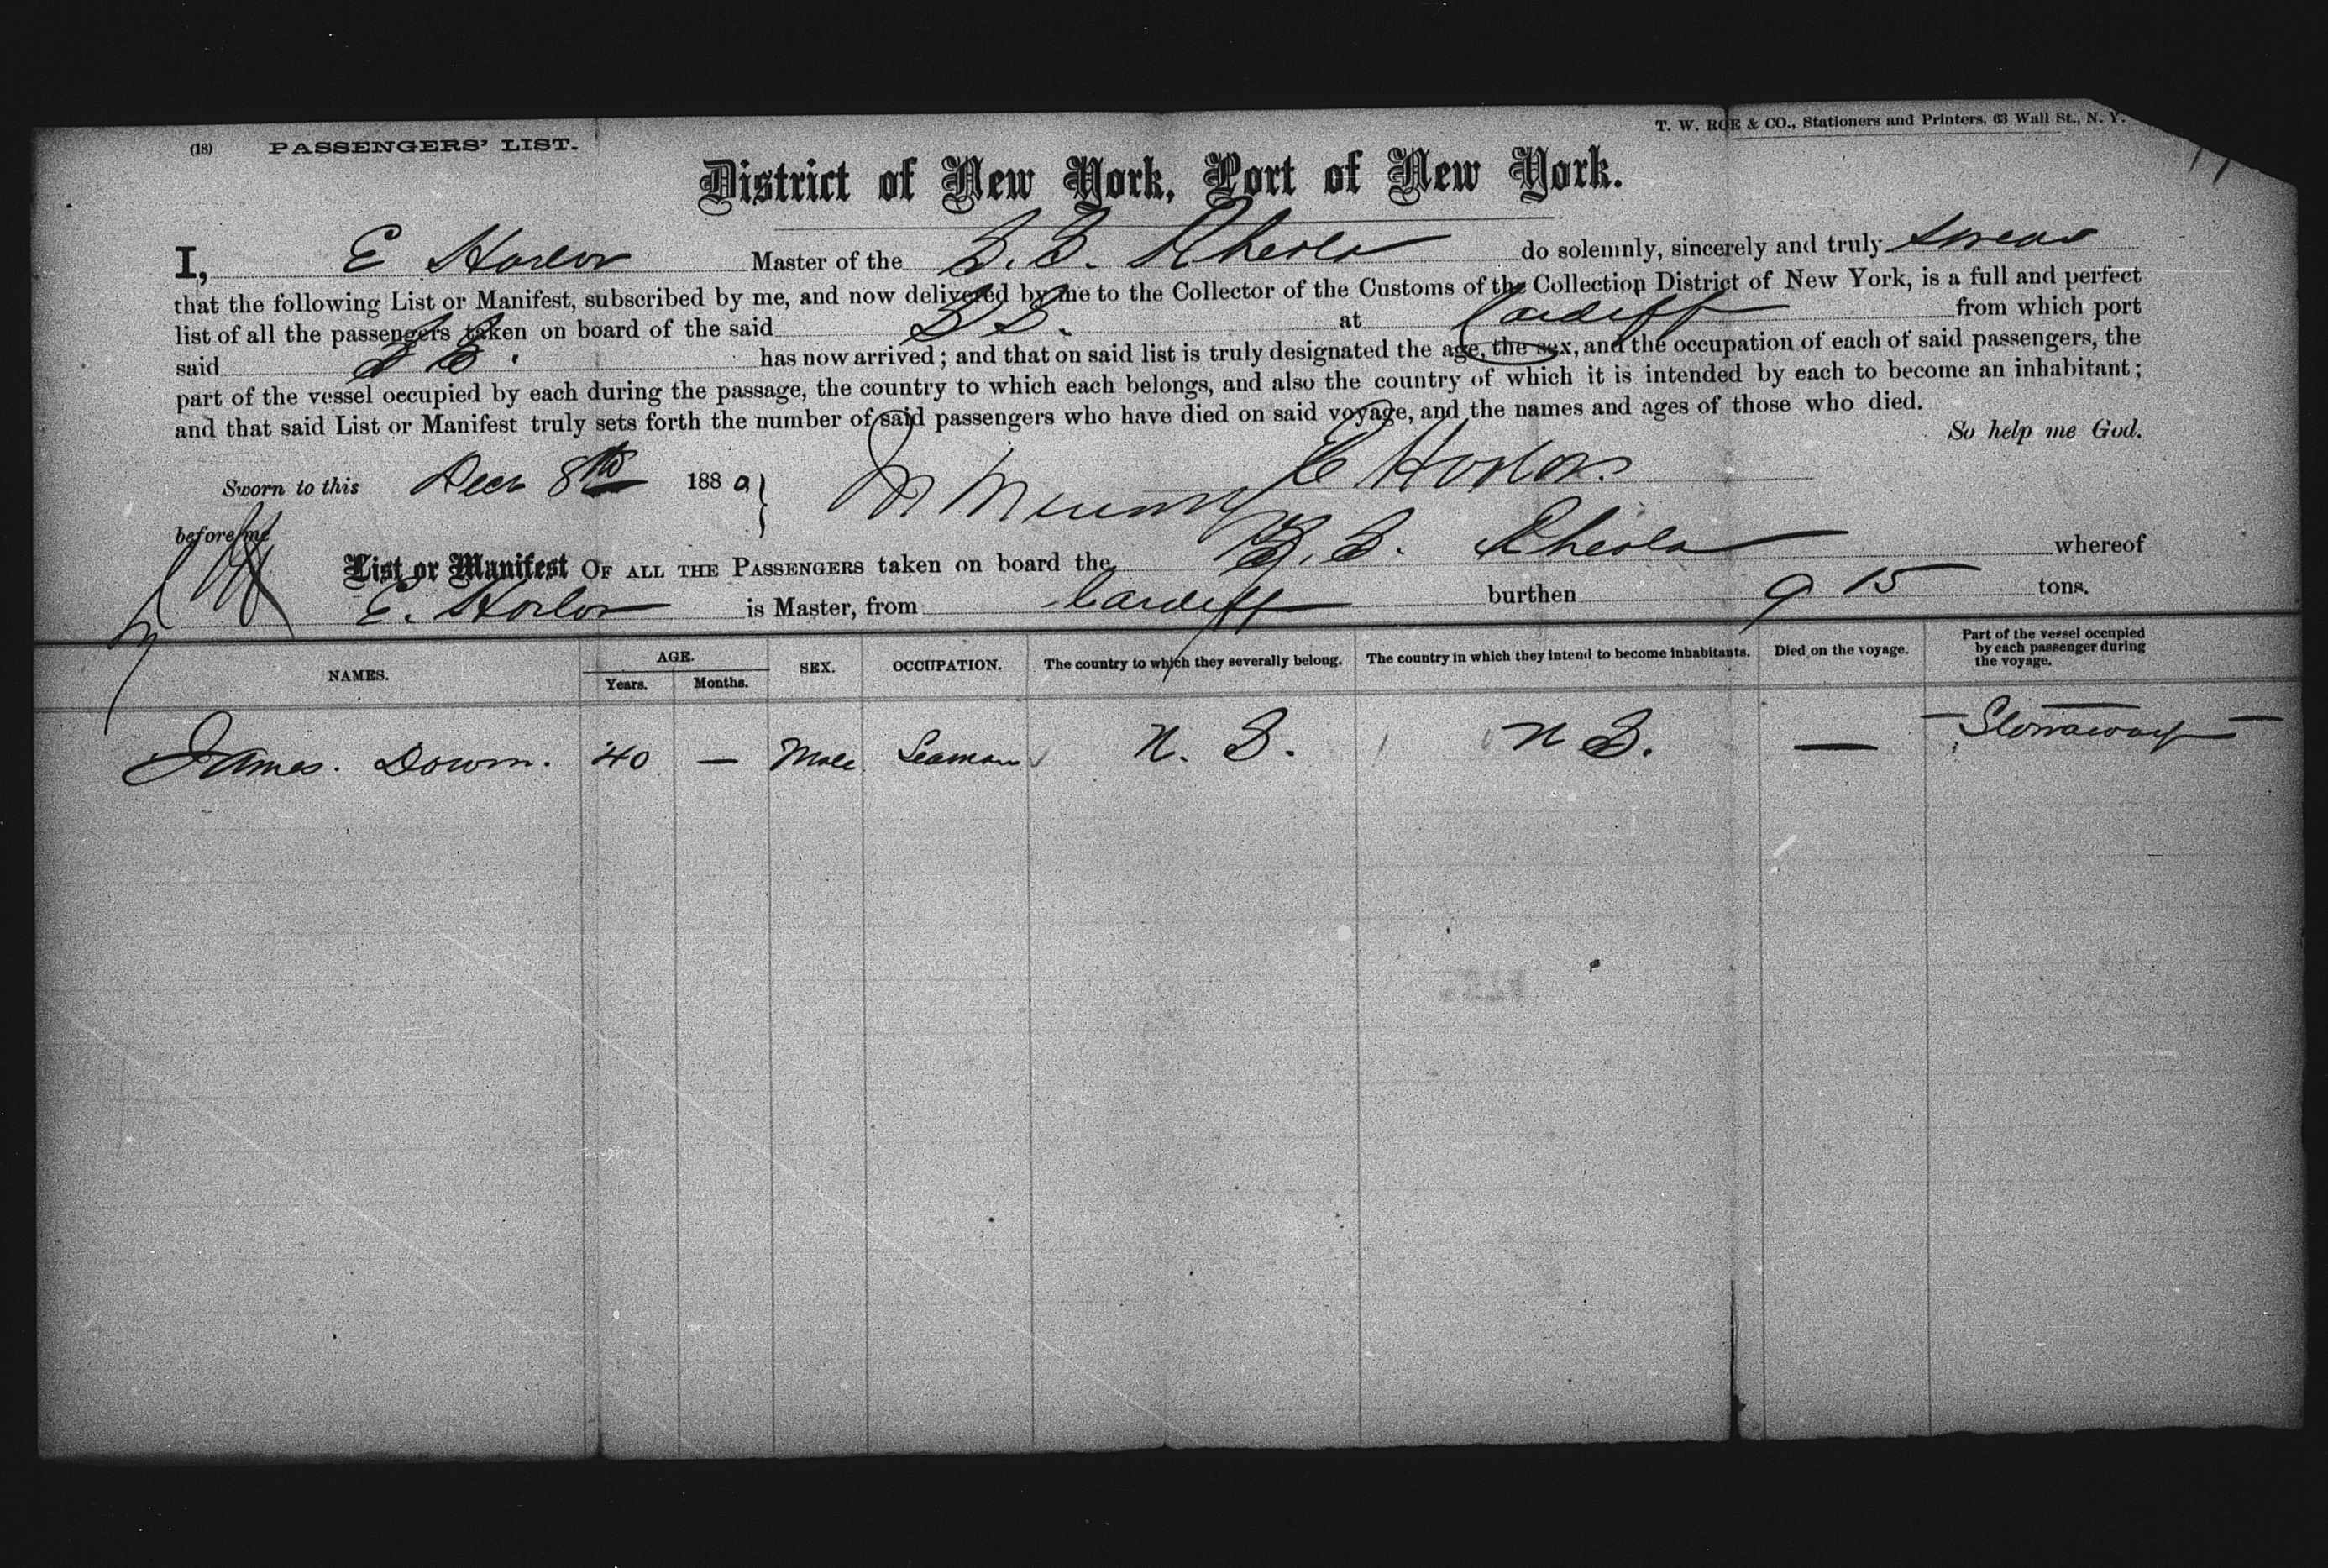 (18) PASSENGERS' LIST.
T. W. ROE & CO., Stationers and Printers, 63 Wall St., N. Y.
District of New York, Port of New York.
I, E Horlor Master of the S.S. Rheola do solemnly, sincerely and truly swear
that the following List or Manifest, subscribed by me, and now delivered by me to the Collector of the Customs of the Collection District of New York, is a full and perfect
list of all the passengers taken on board of the said SS. at Cardiff from which port
said SS. has now arrived; and that on said list is truly designated the age, the sex, and the occupation of each of said passengers, the
part of the vessel occupied by each during the passage, the country to which each belongs, and also the country of which it is intended by each to become an inhabitant;
and that said List or Manifest truly sets forth the number of said passengers who have died on said voyage, and the names and ages of those who died.
So help me God.
Sworn to this Decr 8th 1889 E Horlor.
before me
List or Manifest OF ALL THE PASSENGERS taken on board the S.S. Rheola whereof
E. Horlor is Master, from Cardiff burthen 915 tons.
NAMES. AGE. Years. Months. SEX. OCCUPATION. The country to which they severally belong. The country in which they intend to become inhabitants. Died on the voyage. Part of the vessel occupied by each passenger during the voyage.
James. Down. 40 — Male Seaman N. S. N S. — — Stowaway —